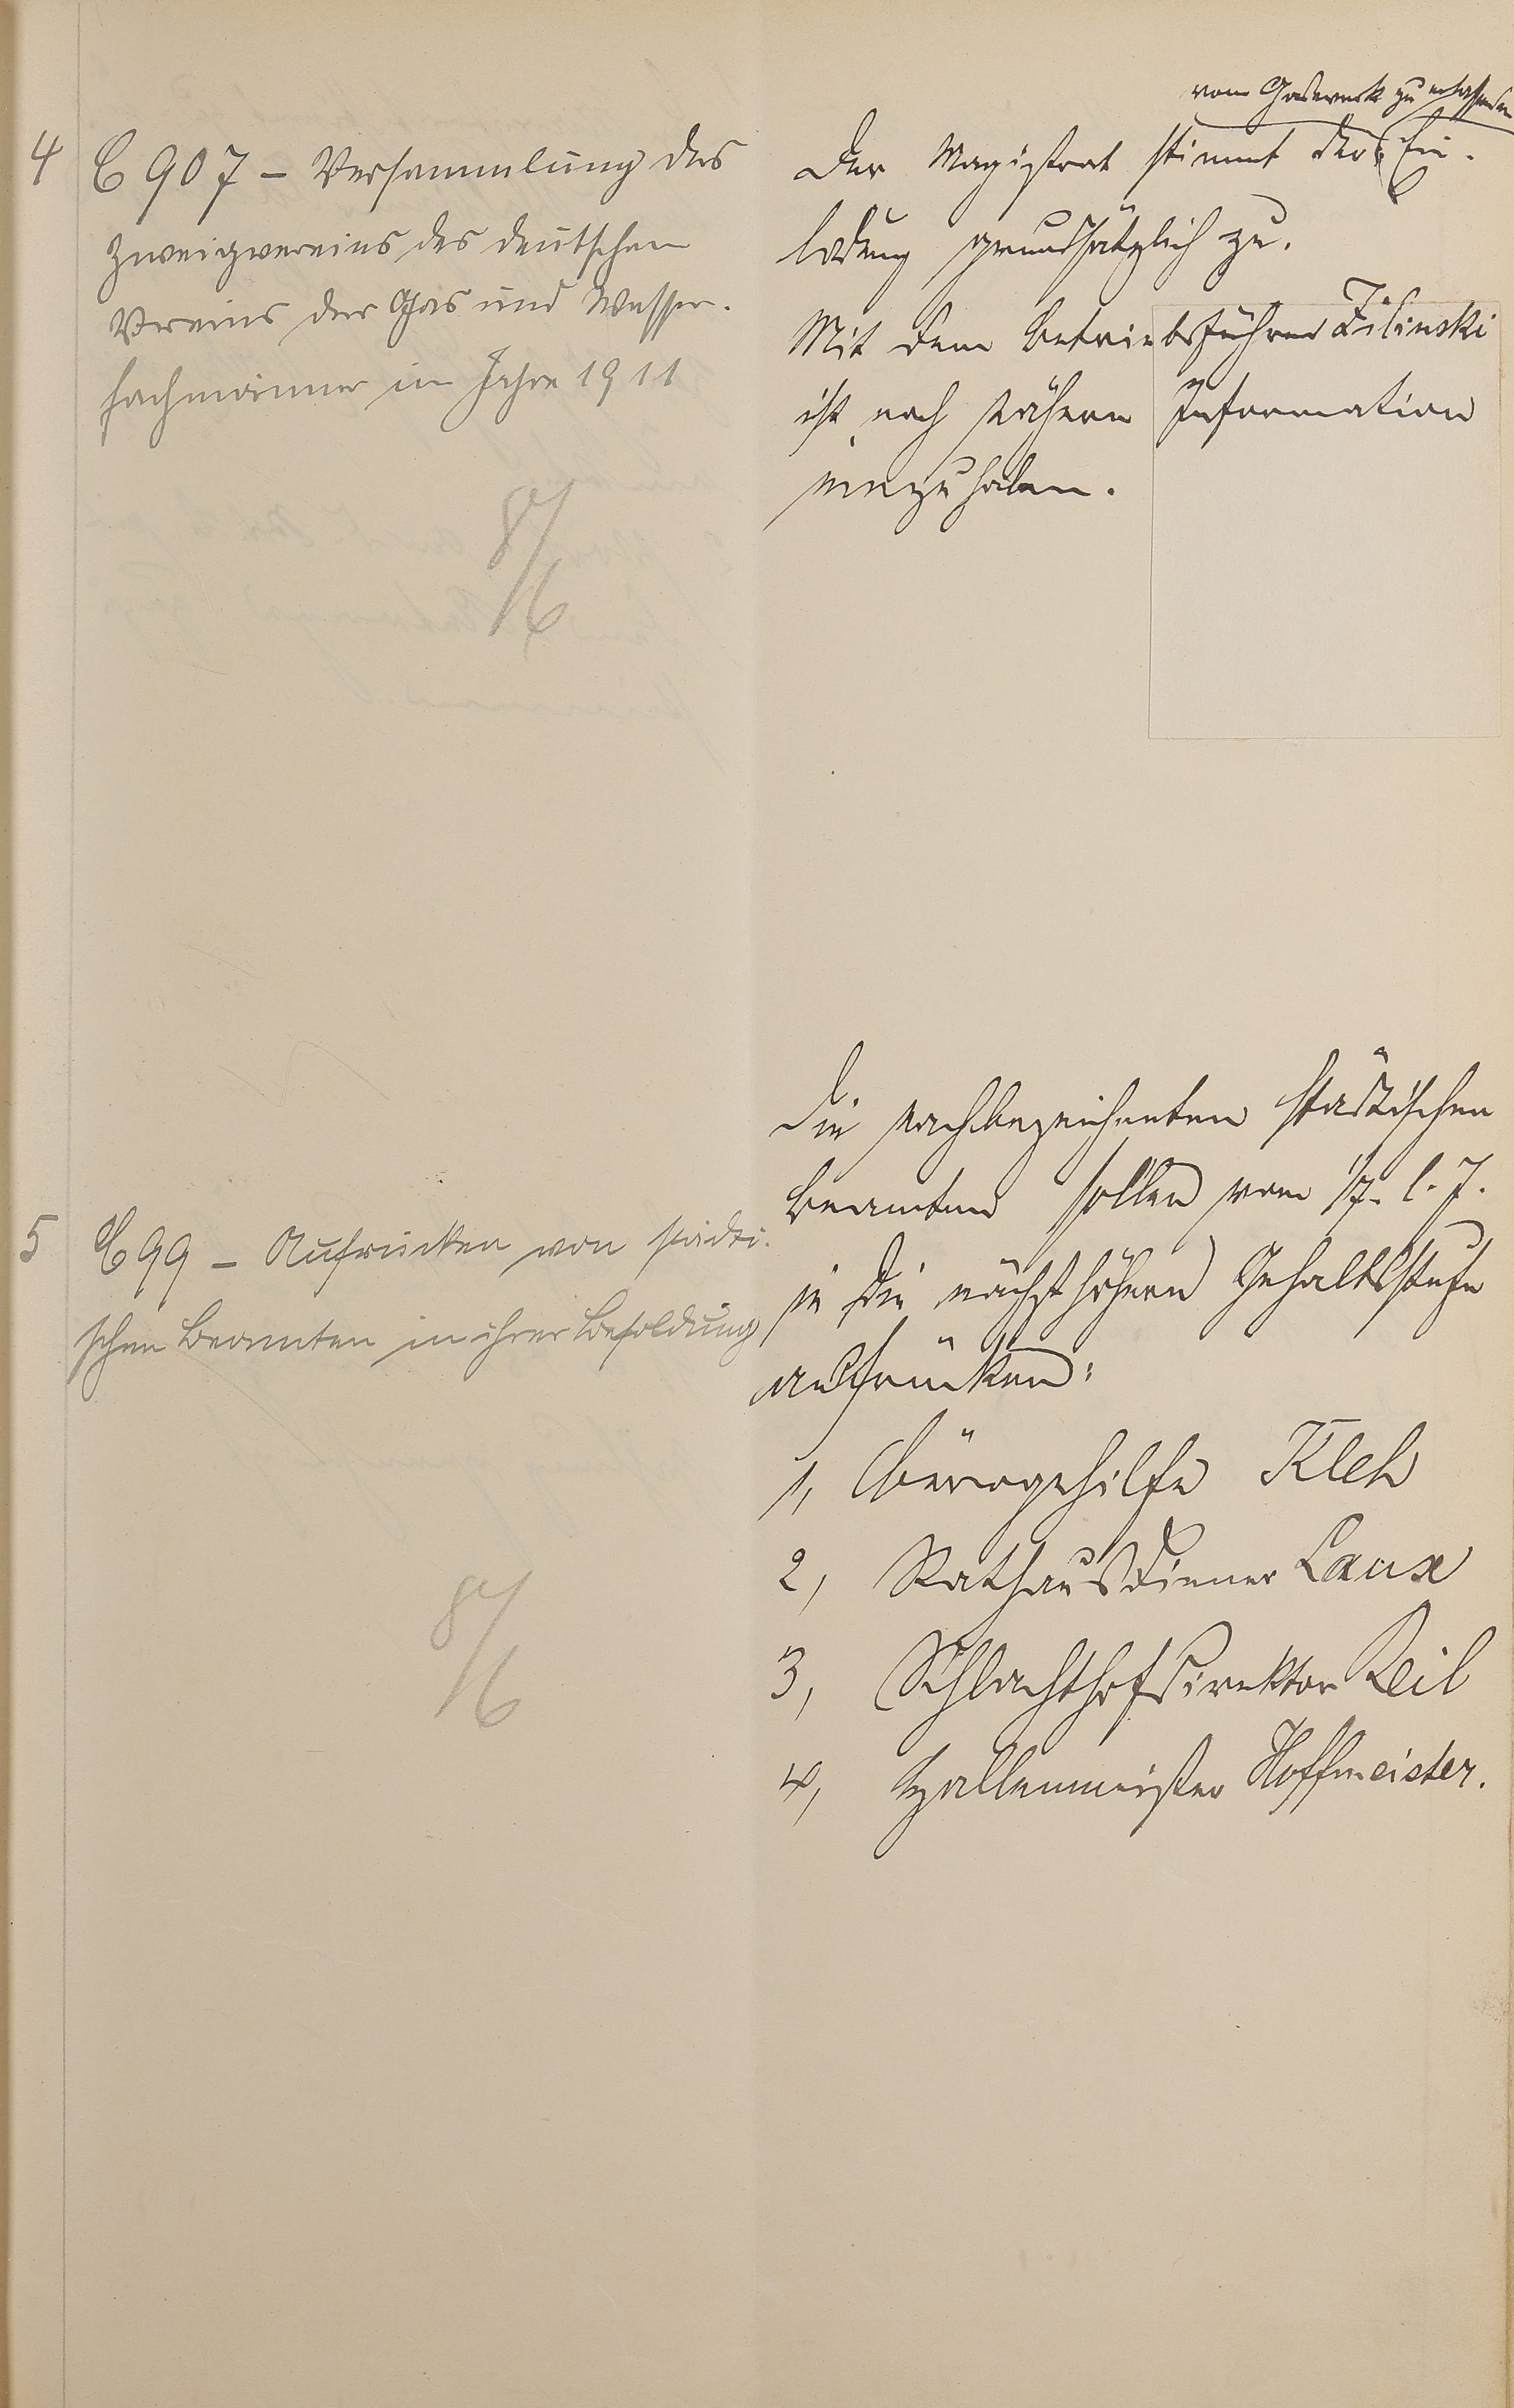 4
C 907 – Versammlung des
Zweigvereins des deutschen
Vereins der Gas und Wasser-
fachmänner im Jahre 1911
8/6
vom Gaswerk zu erlassenden
Der Magistrat stimmt der Ein-
ladung grundsätzlich zu.
Mit dem Betriebsführer Zilinski
ist noch nähere Information
einzuholen.
5
C 99 – Aufrücken von städti-
schen Beamten in ihrer Besoldung
8/6
Die nachbezeichneten städtischen
Beamten sollen vom 1/7. l. J.
in die nächst höhere Gehaltsstufe
aufrücken:
1, Bürogehilfe Kleh
2, Rathausdiener Laux
3, Schlachthofdirektor Keil
4, Hallenmeister Hoffmeister.